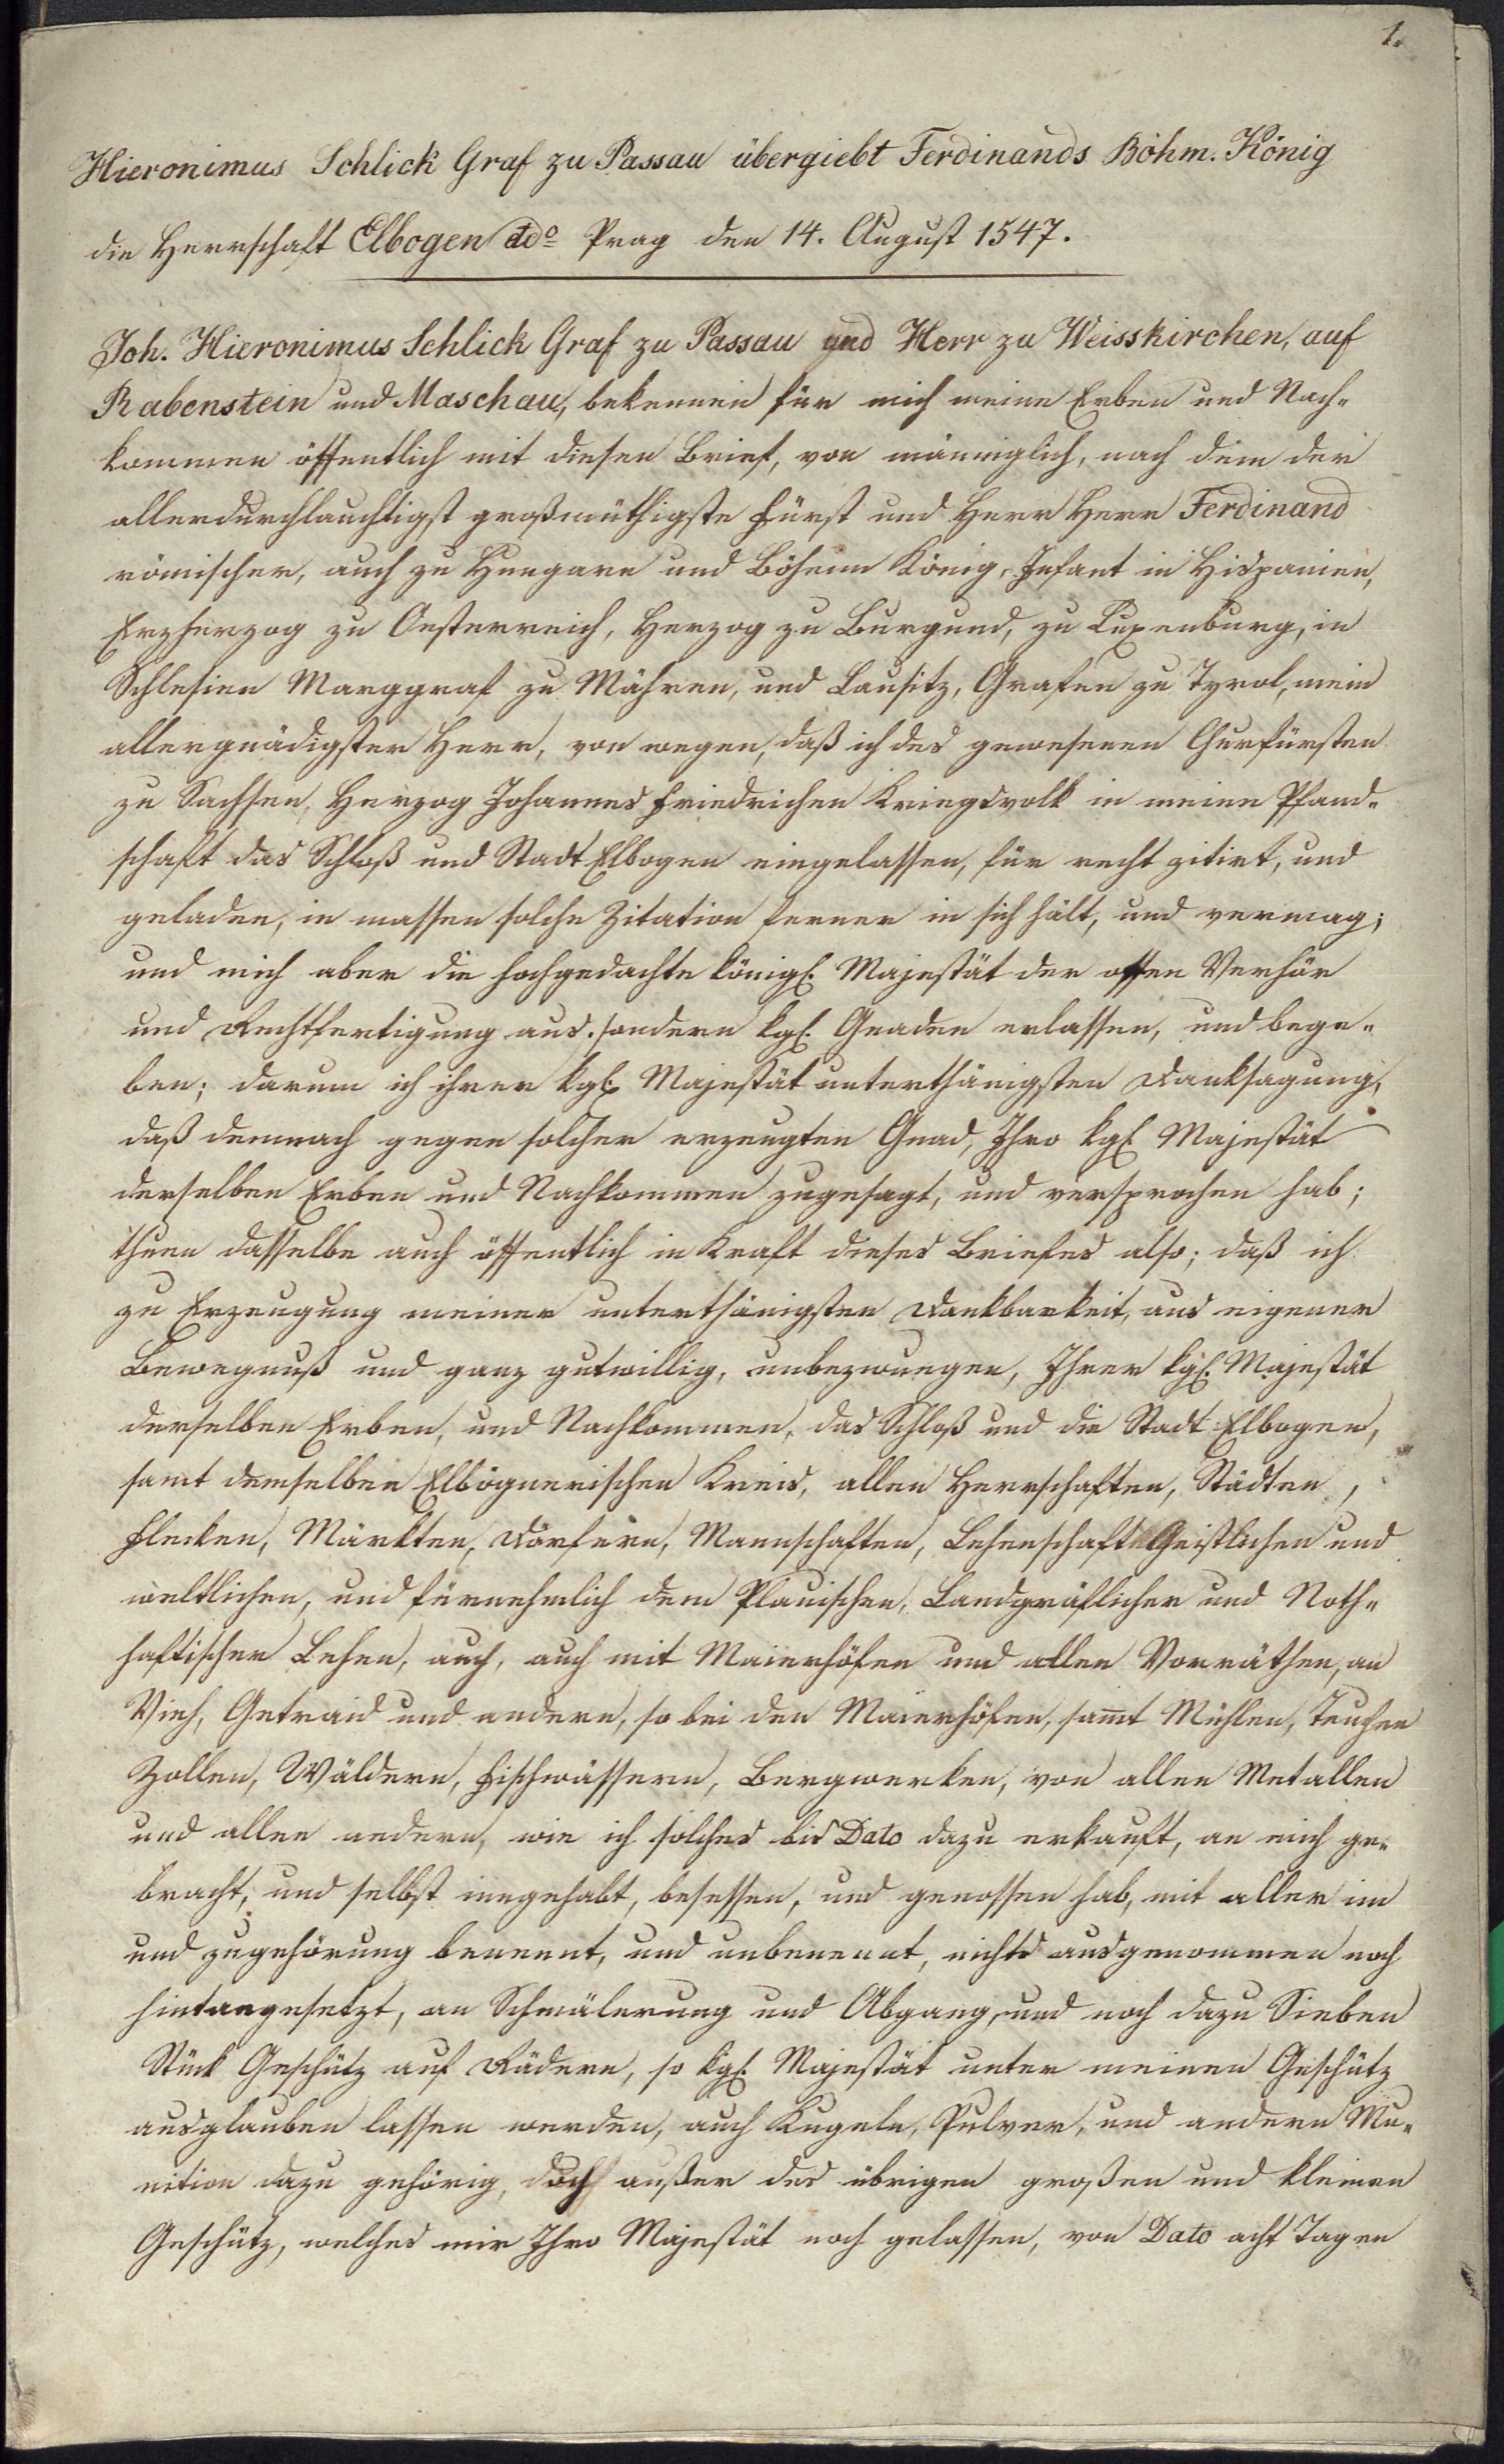 1.
Hieronimus Schlick Graf zu Passau übergiebt Ferdinands Böhm. König
die Herrschaft Elbogen ddo Prag den 14. August 1547.
Joh. Hieronimus Schlick Graf zu Passau und Herr zu Weisskirchen, auf
Rabenstein und Maschau, bekennen für mich meine Erben und Nach-
kommen öffentlich mit diesen Brief, von männiglich, nach dem der
allerdurchlauchtigst großmüthigste Fürst und Herr Herr Ferdinand
römischer, auch zu Hungarn und Böheim König, Infant in Hispanien,
Erzherzog zu Oesterreich, Herzog zu Burgund, zu Luxenburg, in
Schlesien Marggraf zu Mähren, und Lausitz, Grafen zu Tyrol, mein
allergnädigster Herr, von wegen, daß ich des gewesenen Churfürsten
zu Sachsen, Herzog Johannes Friedrichen Kriegsvolk in meine Pfand-
schaft das Schloß und Stadt Elbogen eingelassen, für recht zitirt, und
geladen, in massen solche Zitation ferner in sich hält, und vermag;
und mich aber die hochgedachte königl. Majestät der offen Verhör
und Rechtfertigung aus sondern kgl. Gnaden erlassen, und bege-
ben; darum ich ihrer kgl. Majestät unterthänigsten Danksagung,
daß demnach gegen solcher erzeugten Gnad, Ihro kgl. Majestät
derselben Erben und Nachkommen zugesagt, und versprochen hab;
thuen dasselbe auch öffentlich in Kraft dieses Briefes also; daß ich
zu Erzeugung meiner unterthänigsten Dankbarkeit, aus eigener
Bewegnuß und ganz gutwillig, unbezwungen, Ihrer kgl. Majestät
derselben Erben, und Nachkommen, das Schloß und die Stadt Elbogen,
samt demselben Elbognerischen Kreis, allen Herrschaften, Städten,
Flecken, Märkten, Dörfern, Mannschaften, Lehenschaft Geistlichen und
weltlichen, und fürnehmlich dem Plauischen, Landgräflicher und Noth-
haftischer Lehen, auch, auch mit Maierhöfen und allen Vorräthen, an
Vieh, Getraid und andern, so bei den Maierhöfen, sammt Mühlen, Teuchen
Zollen, Wäldern, Fischwässern, Bergwerken, von allen Metallen
und allen andern, wie ich solches bis Dato dazu erkauft, an mich ge-
bracht, und selbst inngehabt, besessen, und genossen hab, mit aller im
und zugehörung benennt, und unbenennt, nichts ausgenommen noch
hintangesetzt, an Schmälerung und Abgang, und noch dazu Sieben
Stück Geschütz auf Rädern, so kgl. Majestät unter meinen Geschütz
ausglauben lassen werden, auch Kugeln, Pulver, und andern Mu-
nition dazu gehörig, doch außer des übrigen großen und kleinen
Geschütz, welches mir Ihro Majestät noch gelassen, von Dato acht Tagen